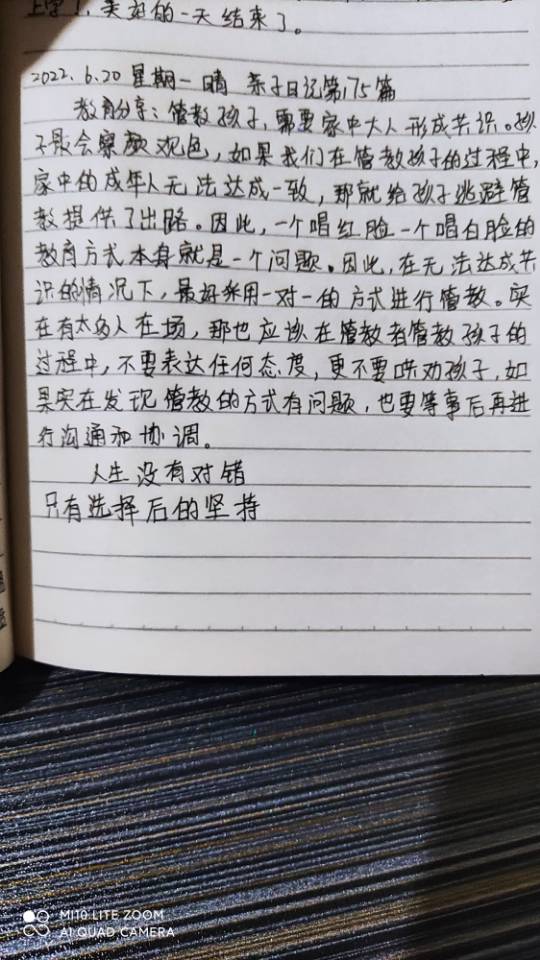 上学了,美好的一天结束了。
2022.6.20 星期一 晴 亲子日记第175篇
教育分享:管教孩子,需要家中大人形成共识。孩
子最会察颜观色,如果我们在管教孩子的过程中,
家中的成年人无法达成一致,那就给孩子逃避管
教提供了出路。因此,一个唱红脸一个唱白脸的
教育方式本身就是一个问题。因此,在无法达成共
识的情况下,最好采用一对一的方式进行管教。实
在有太多人在场,那也应该在管教者管教孩子的
过程中,不要表达任何态度,更不要哄劝孩子,如
果实在发现管教的方式有问题,也要等事后再进
行沟通和协调。
人生没有对错
只有选择后的坚持
MI 10 LITE ZOOM
AI QUAD CAMERA